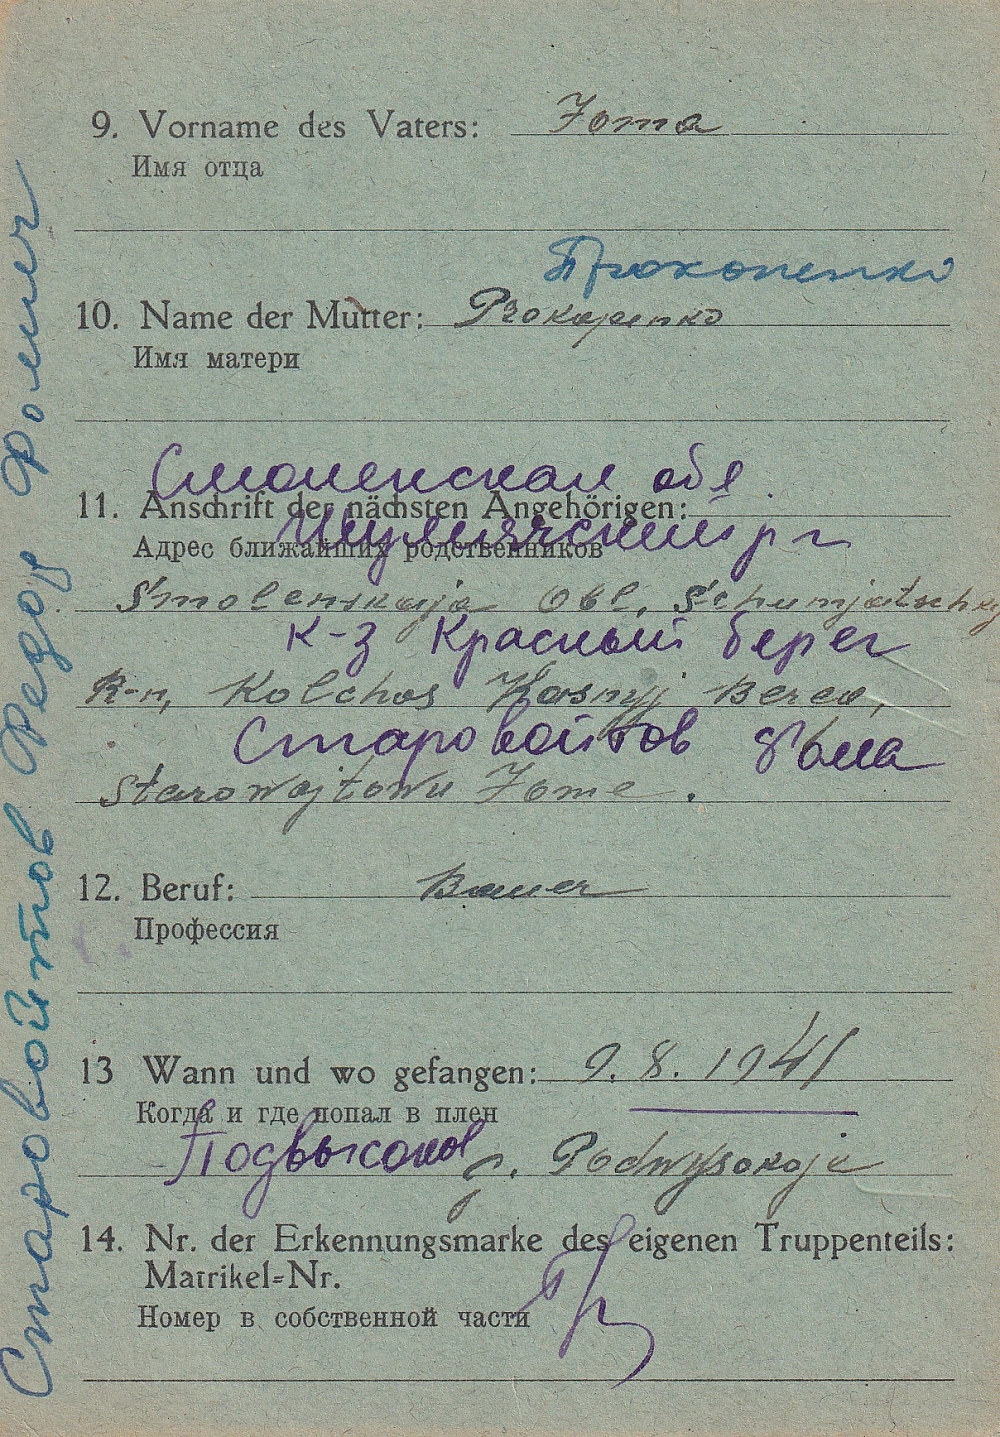 9. Vorname des Vaters: Foma
Имя отца
Прокопенко
10. Name der Mutter: Prokopenko
Имя матери
Смоленская обл
11. Anschrift der nächsten Angehörigen:
Шумячский р-н
Адрес ближайших родственников
Smolenskaja Obl. Schumjatschej
к-з Красный берег
R-n, Kolchos Krasnyj Bereg,
Старовойтов Фома
Starowojtow Foma.
12. Beruf: Bauer
Профессия
13 Wann und wo gefangen: 9. 8. 1941
Когда и где попал в плен
Подвысокое
Podwysokoje
14. Nr. der Erkennungsmarke des eigenen Truppenteils:
Matrikel-Nr.
Номер в собственной части
Старовойтов Федор Фомич